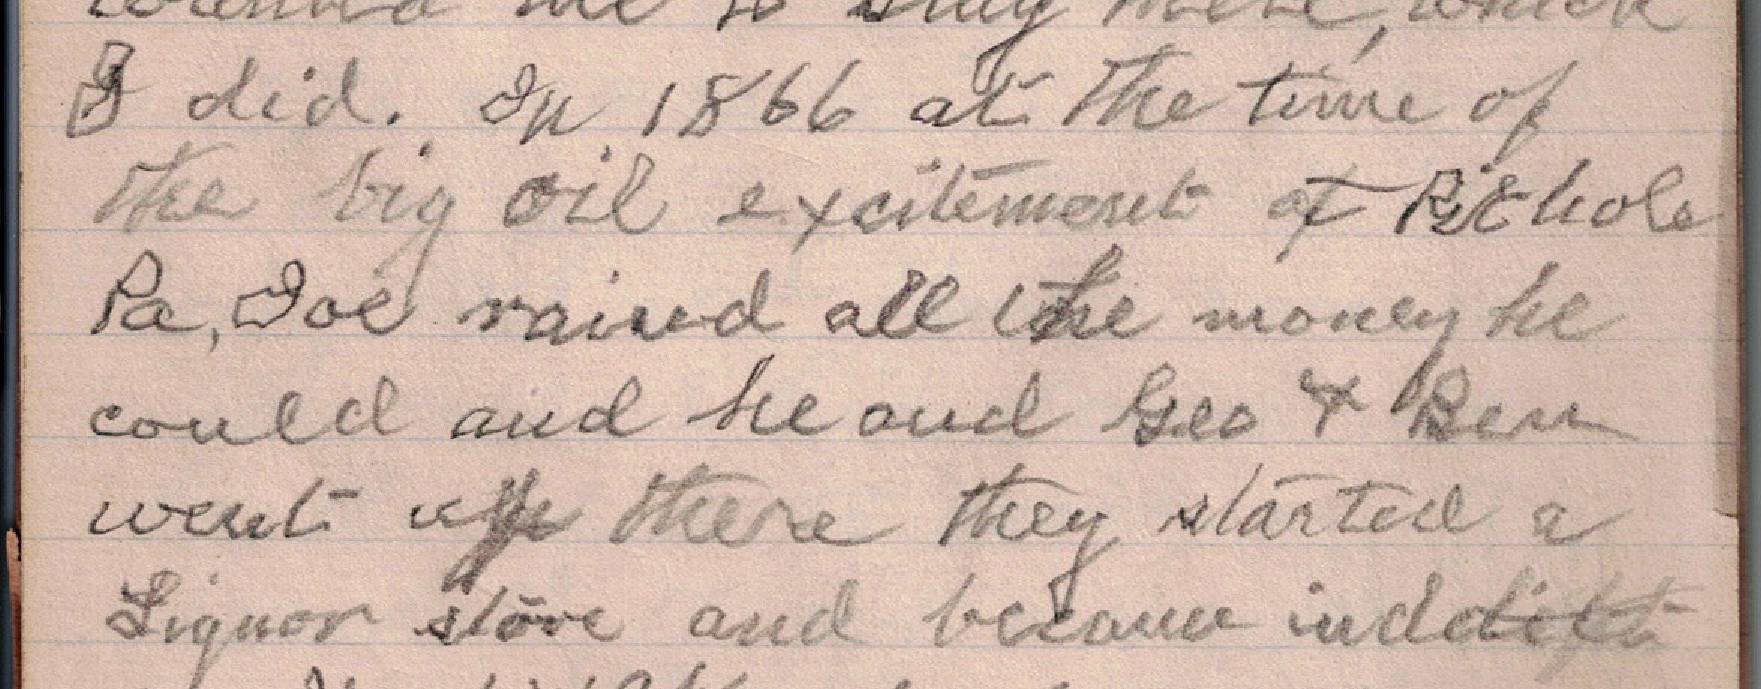 wanted me to stay there, which
I did. In 1866 at the time of
the big oil excitement at Pithole
Pa, Joe raised all the money he
could and he and Geo & Ben
went up there they started a
Liquor store and became